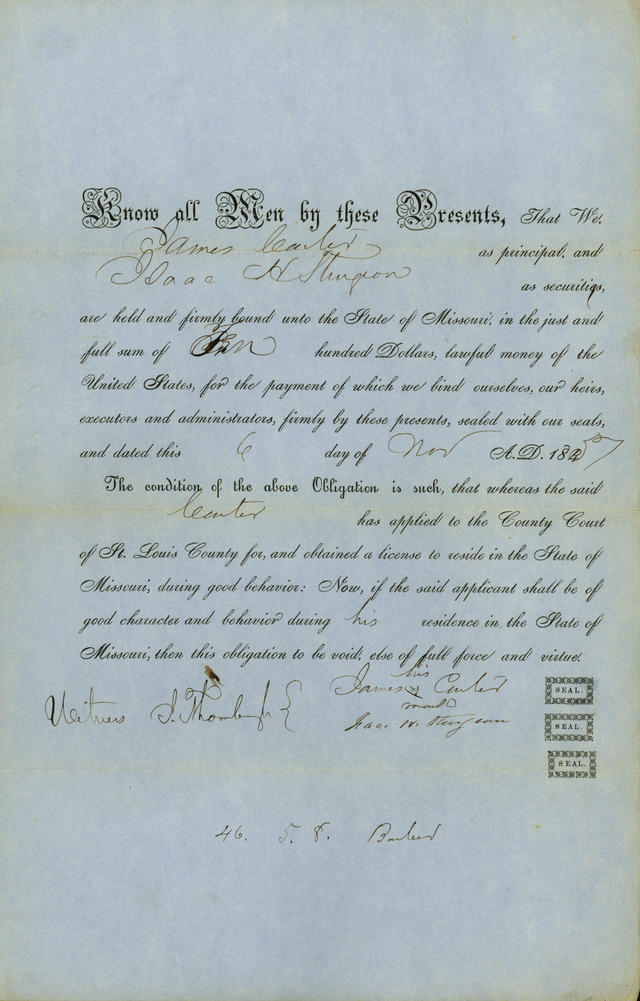 Know all Men by these Presents, That We,
James Carter as principal, and
Isaac H Sturgeon as securities,
are held and firmly bound unto the State of Missouri, in the just and
full sum of Ten hundred Dollars, lawful money of the
United States, for the payment of which we bind ourselves, our heirs,
executors and administrators, firmly by these presents, sealed with our seals,
and dated this 6 day of Nov A.D. 1857
The condition of the above Obligation is such, that whereas the said
Carter has applied to the County Court
of St. Louis County for, and obtained a license to reside in the State of
Missouri, during good behavior: Now, if the said applicant shall be of
good character and behavior during his residence in the State of
Missouri, then this obligation to be void, else of full force and virtue.
his
James X Carter SEAL.
mark
Witness
Isaac H. Sturgeon SEAL.
SEAL.
46. 5. 8.